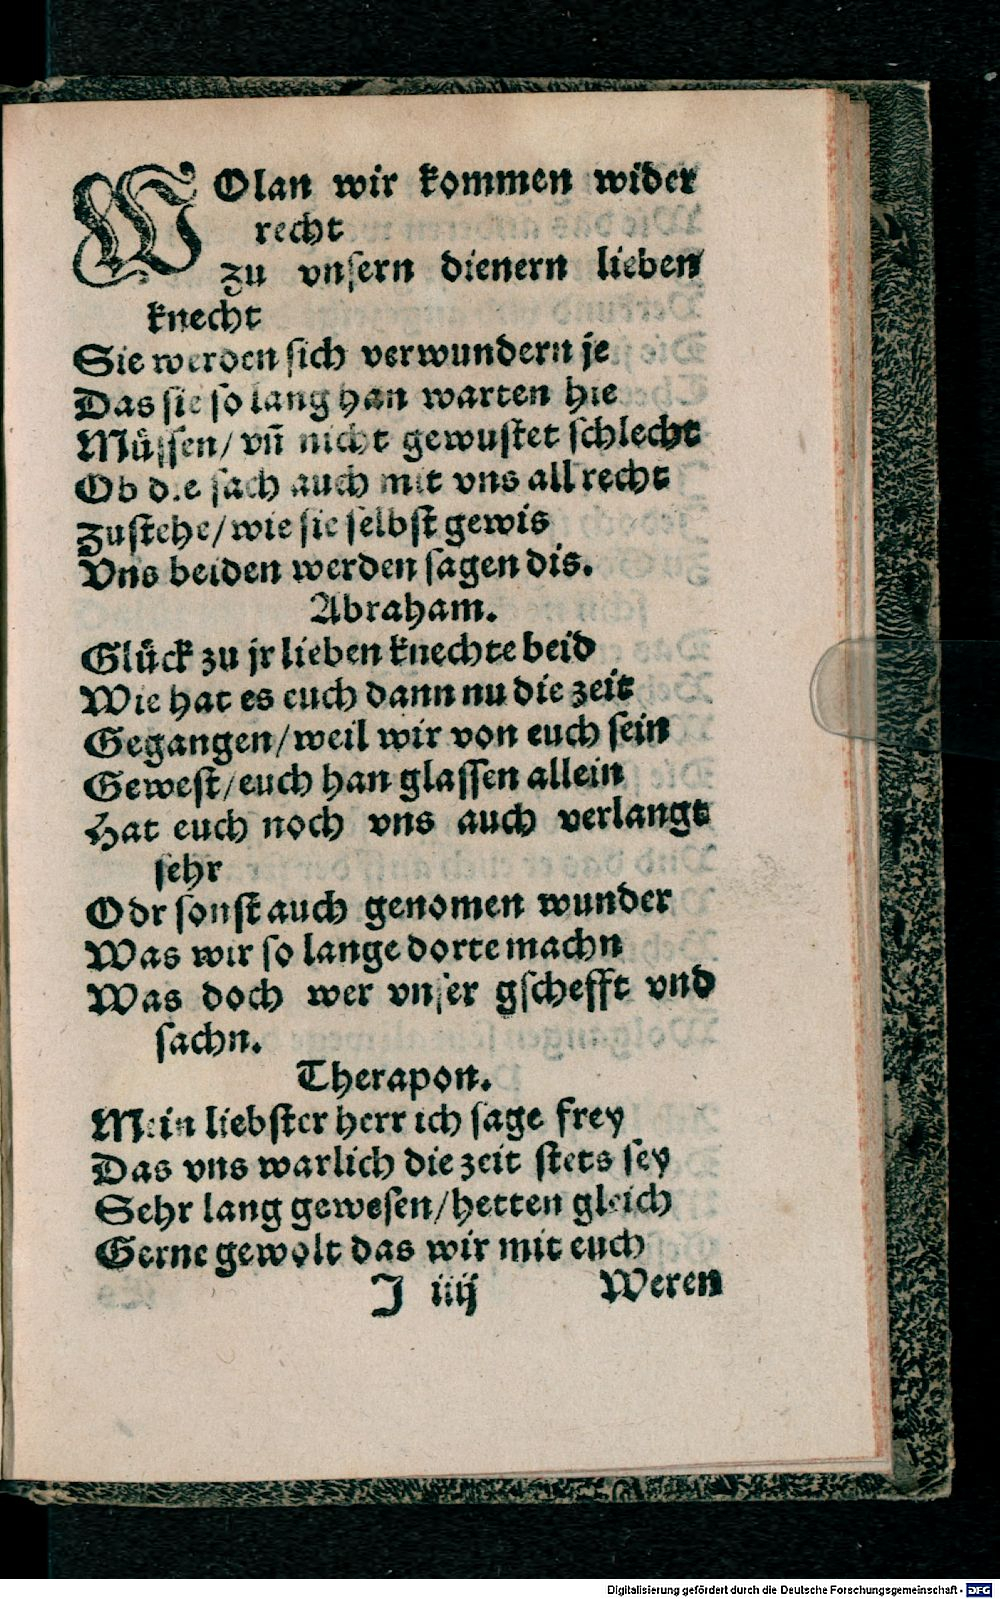 WOlan wir kommen wider
recht
zu vnsern dienern lieben
knecht
Sie werden sich verwundern je
Das sie so lang han warten hie
Müssen/ vñ nicht gewustet schlecht
Ob die sach auch mit vns all recht
zustehe/ wie sie selbst gewis
Vns beiden werden sagen dis.
Abraham.
Glück zu jr lieben knechte beid
Wie hat es euch dann nu die zeit
Gegangen/ weil wir von euch sein
Gewest/ euch han glassen allein
Hat euch noch vns auch verlangt
sehr
Odr sonst auch genomen wunder
Was wir so lange dorte machn
Was doch wer vnser gschefft vnd
sachn.
Therapon.
Mein liebster herr ich sage frey
Das vns warlich die zeit stets sey
Sehr lang gewesen/ hetten gleich
Gerne gewolt das wir mit euch
J iiij Weren
Digitalisierung gefördert durch die Deutsche Forschungsgemeinschaft - DFG